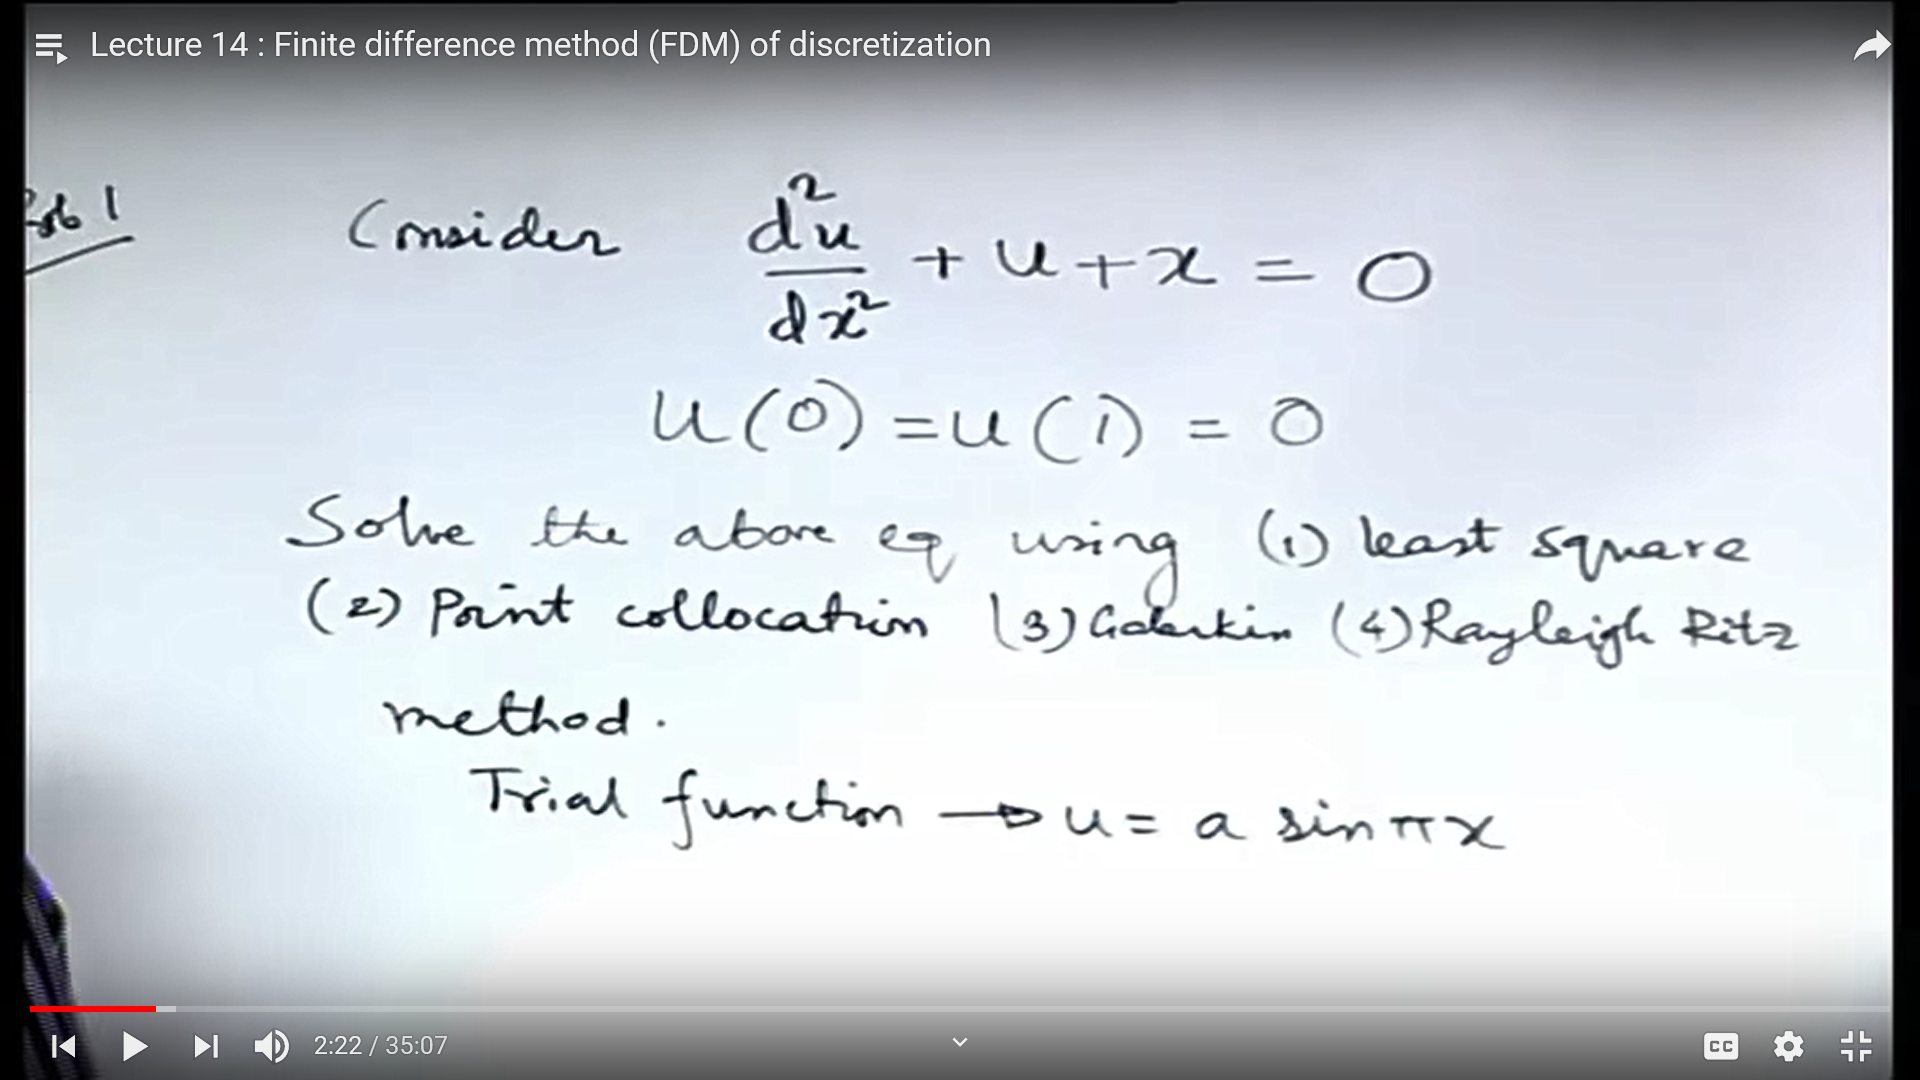 Lecture 14 : Finite difference method (FDM) of discretization
Consider d²u/dx² + u + x = 0
u(0) = u(1) = 0
Solve the above eq using (1) least square
(2) Point collocation (3) Galerkin (4) Rayleigh Ritz
method.
Trial function → u = a sin πx
2:22 / 35:07
CC